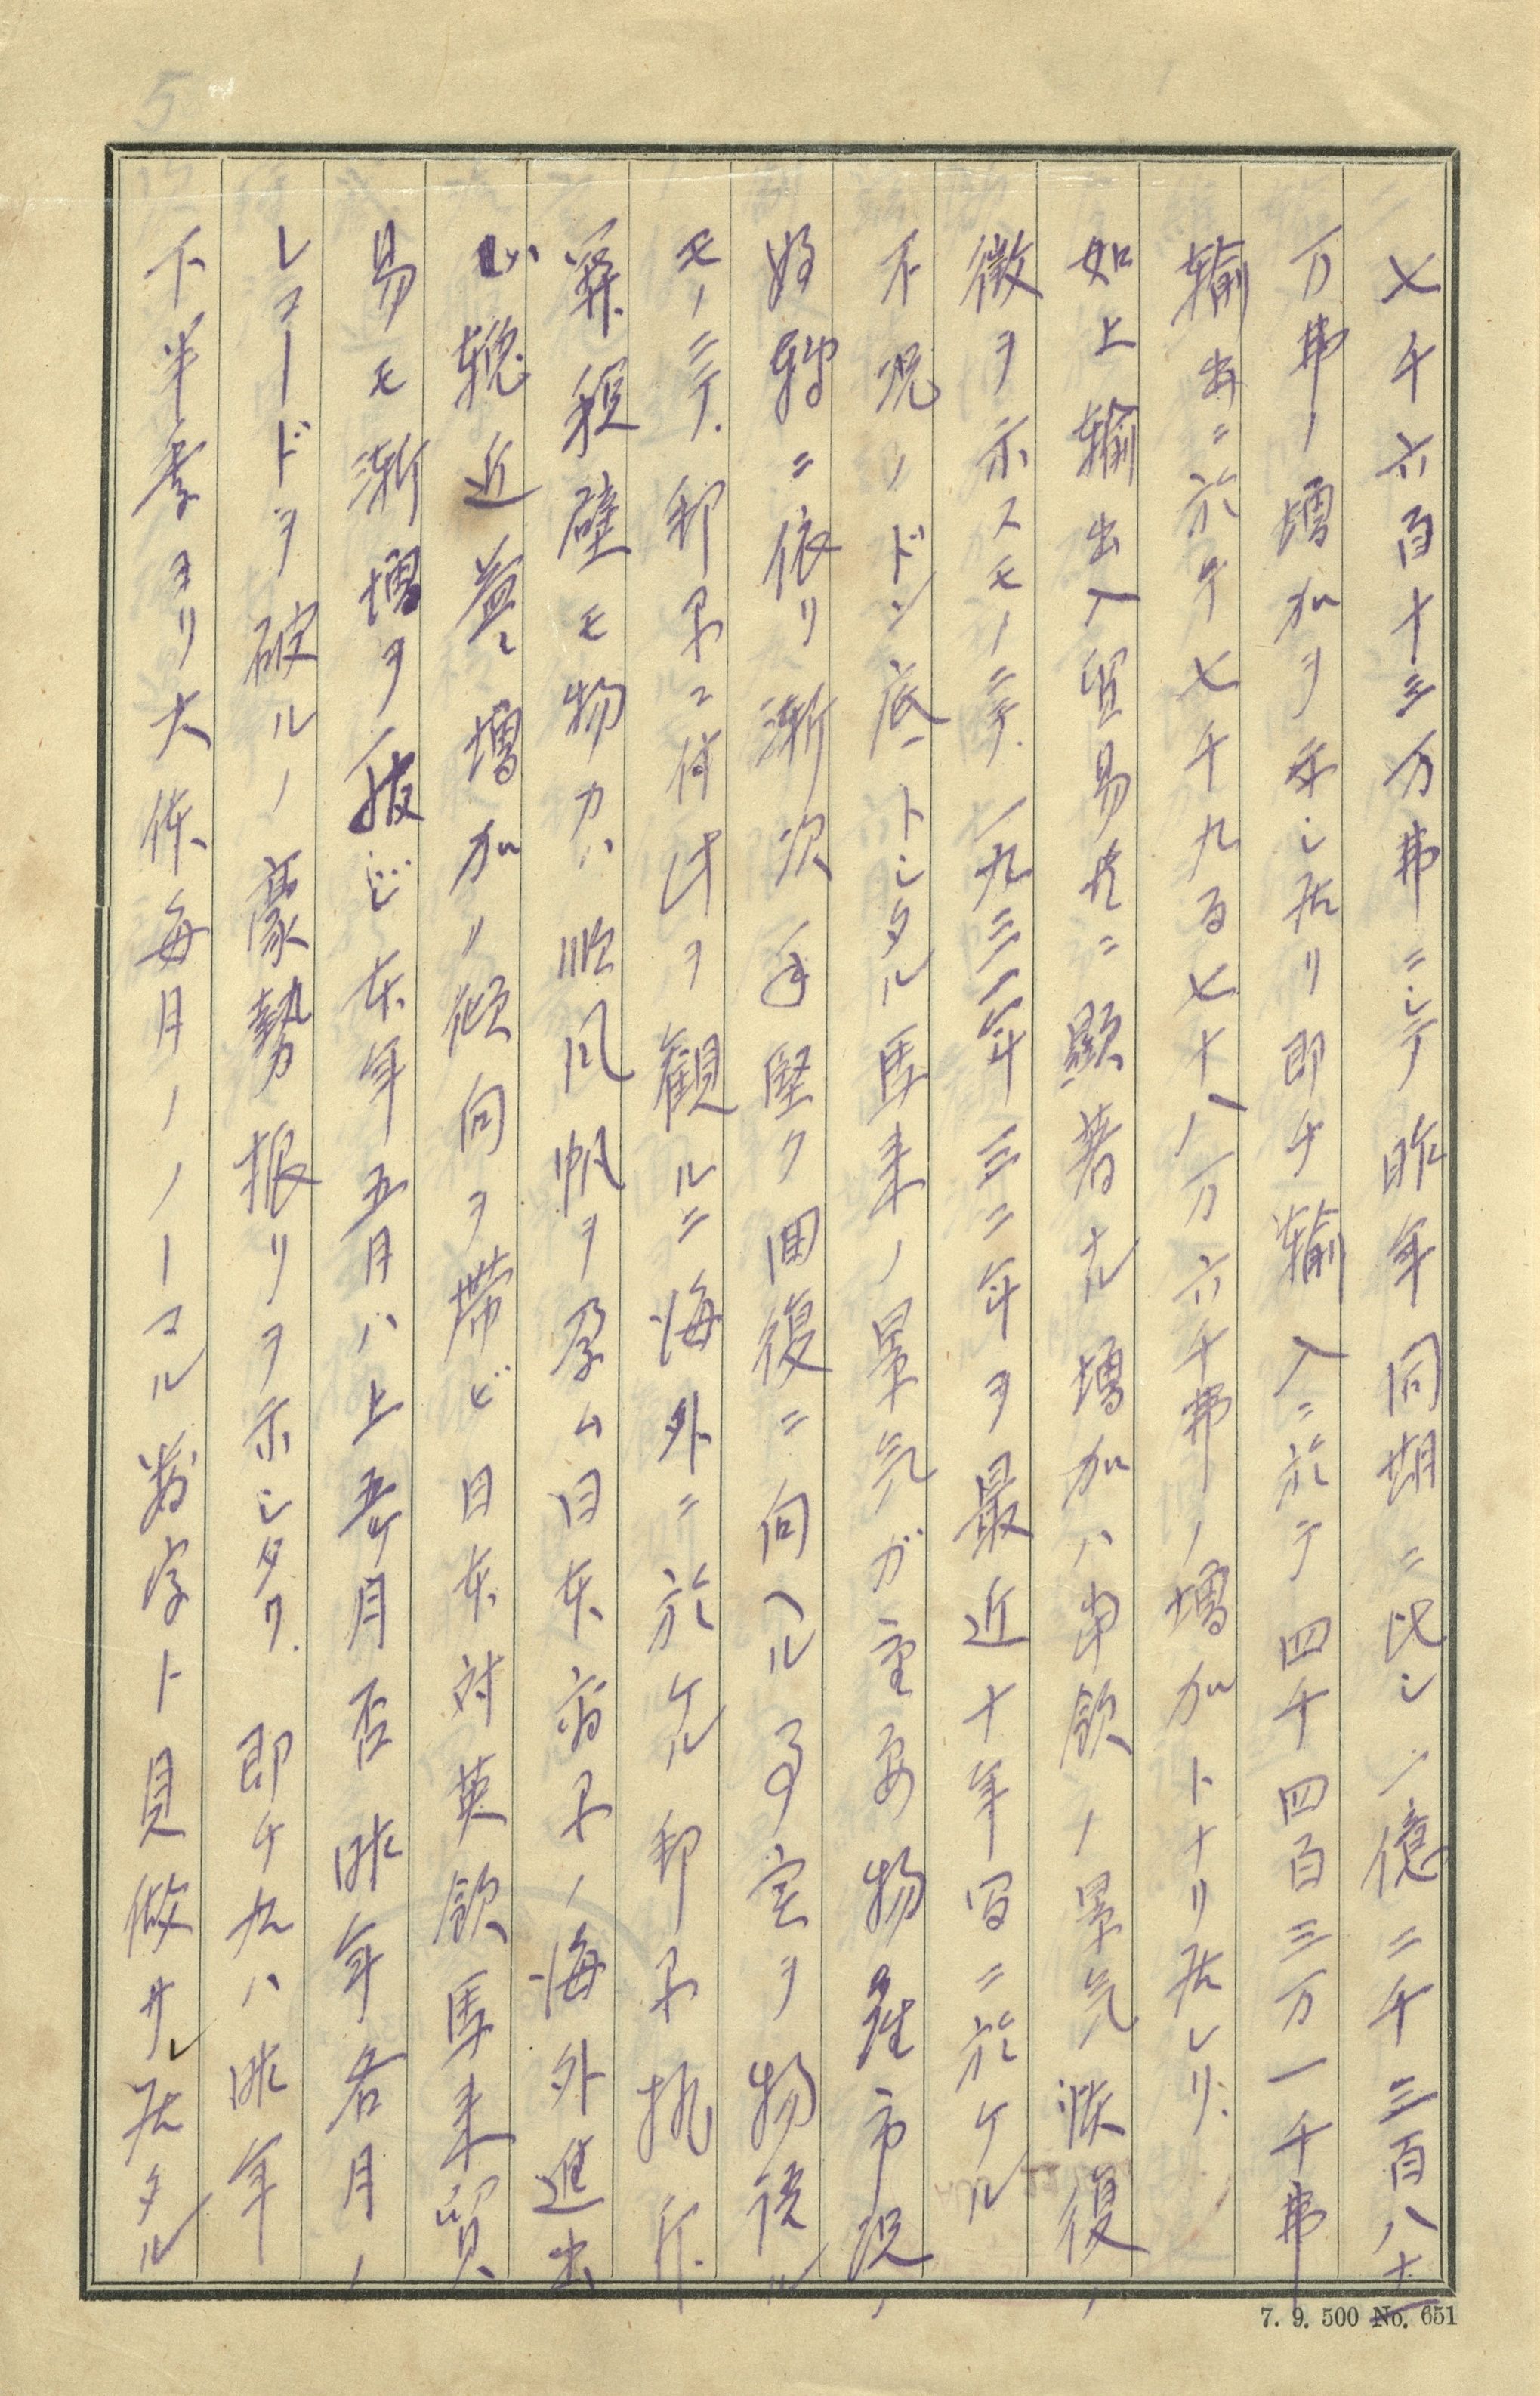 5
七千六百十三万弗ニシテ昨年同期ニ比シ一億二千三百八十
万弗ノ増加ヲ示シ居リ即チ輸入ニ於テ四千四百三万一千弗
輸出ニ於テ七千九百七十八万六千弗ノ増加トナリ居レリ.
如上輸出入貿易共ニ顕著ナル増加ハ申欽ノ景気恢復ノ
徴ヲ示スモノニテ.一九三一年三二年ヲ最近十年間ニ於ケル
不況ノドン底トシタル馬来ノ景気ガ主要物産市況ノ
好転ニ依リ漸次手堅ク回復ニ向ヘル事実ヲ物語ル
モノニテ.邦品ニ付此ヲ観ルニ海外ニ於ケル邦品排斥.
算積壁モ物カハ順風帆ヲ孕ム日本商品ノ海外進出
ハ輓近益々増加ノ傾向ヲ帯ビ日本対英欽馬来貿
易モ漸増ヲ報ジ本年五月ハ上五ケ月否昨年各月ノ
レコードヲ破ルノ豪勢振リヲ示シタリ.即チ右ハ昨年
下半季ヨリ大体毎月ノノーマル数字ト見做サレ居タル
7. 9. 500 No. 651